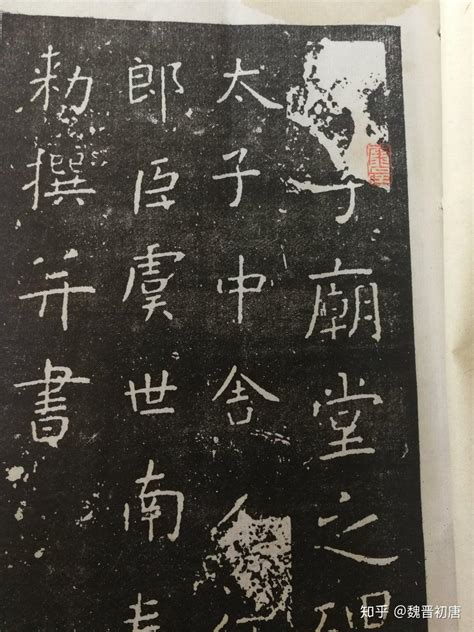 子廟堂之碑
太子中舍人行
郎臣虞世南奉
勅撰并書
知乎 @魏晋初唐